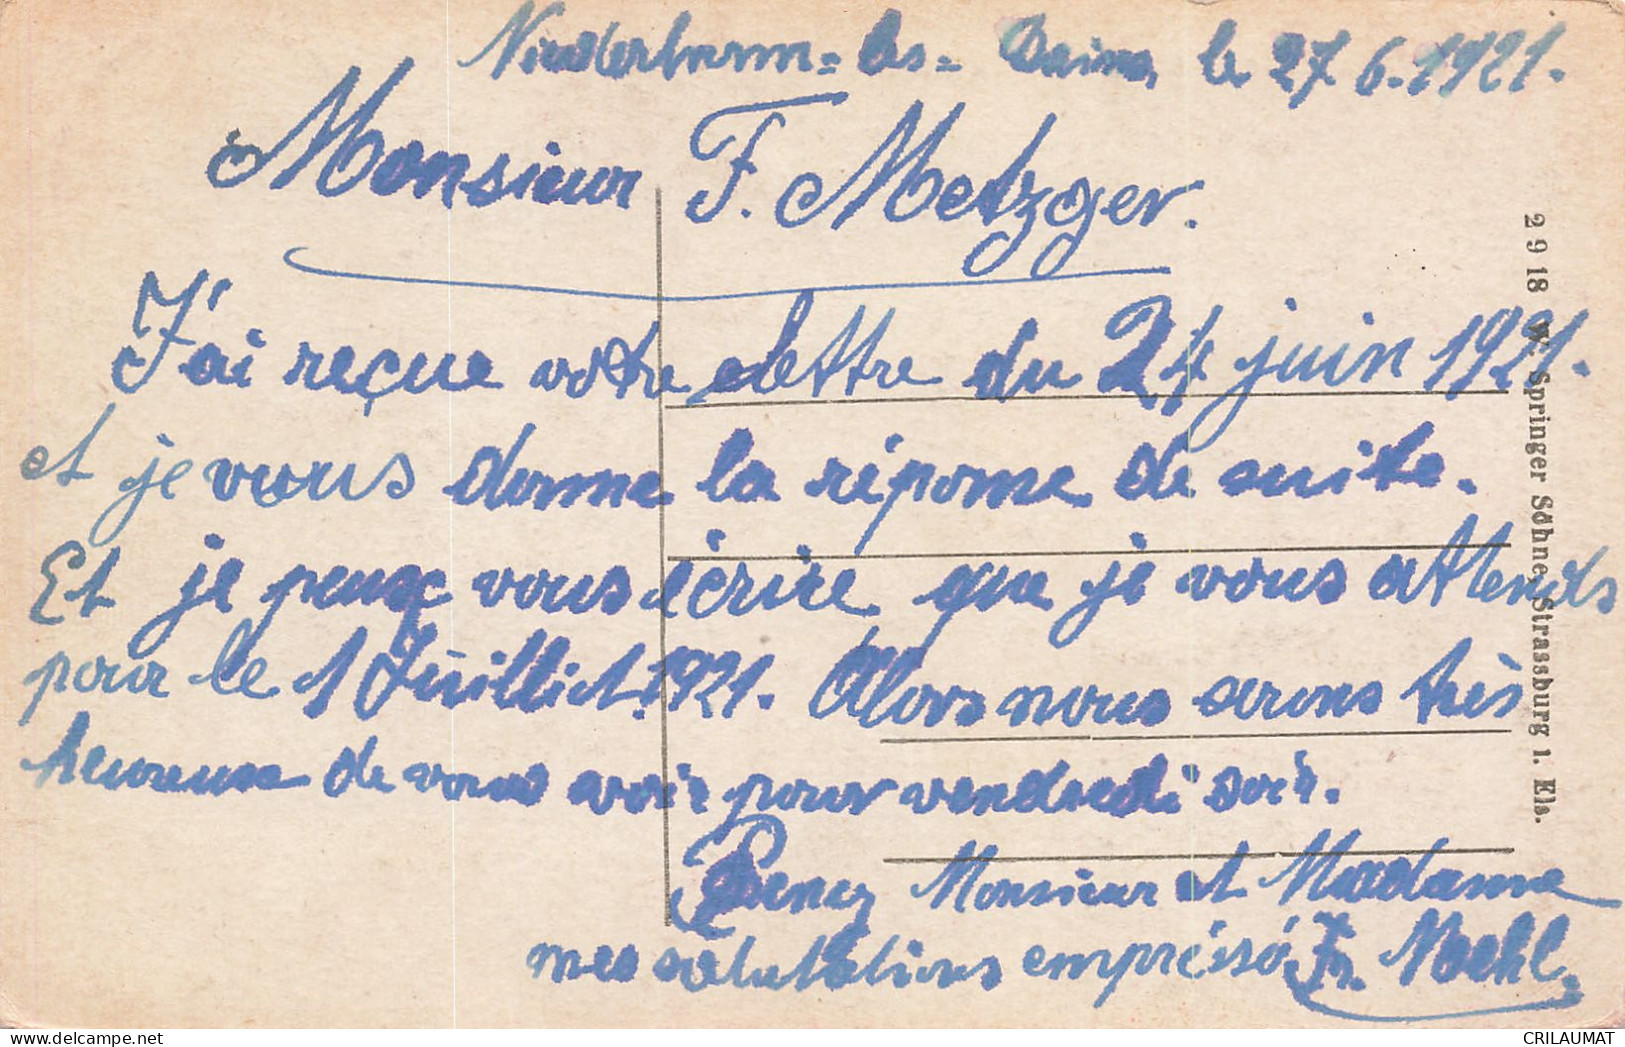 Niederbronn=les=Bains, le 27 6. 1921.
Monsieur F. Metzger.
J'ai reçue votre lettre du 24 juin 1921.
et je vous donne la réponse de suite.
Et je peux vous écrire que je vous attends
pour le 1 Juillet. 1921. Alors nous serons très
heureuse de vous voir pour vendredi soir.
Monsieur et Madame
mes salutations empréssé Fr. Mehl.
2918 W. Springer Söhne, Strassburg i. Els.
CRILAUMAT